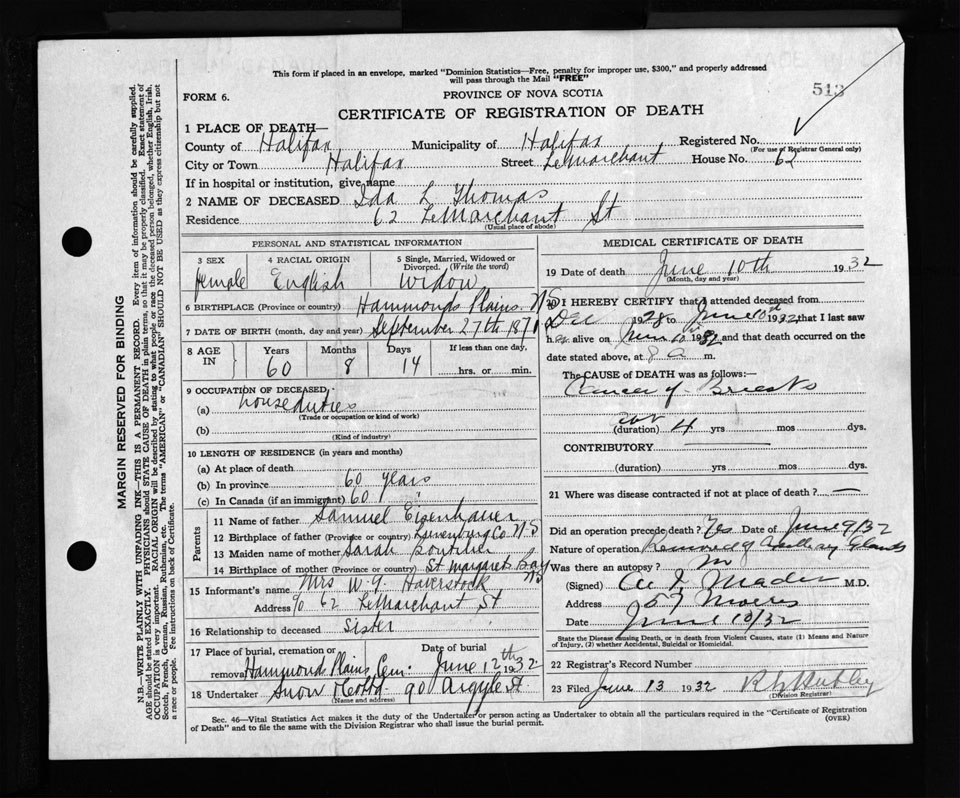 This form if placed in an envelope, marked "Dominion Statistics—Free, penalty for improper use, $300," and properly addressed
will pass through the Mail "FREE"
513
FORM 6.
PROVINCE OF NOVA SCOTIA
CERTIFICATE OF REGISTRATION OF DEATH
1 PLACE OF DEATH—
County of Halifax Municipality of Halifax Registered No.
(For use of Registrar General only)
City or Town Halifax Street LeMarchant House No. 62
If in hospital or institution, give name
2 NAME OF DECEASED Ida L Thomas
Residence 62 LeMarchant St
(Usual place of abode)
PERSONAL AND STATISTICAL INFORMATION
3 SEX Female
4 RACIAL ORIGIN English
5 Single, Married, Widowed or
Divorced. (Write the word)
Widow
6 BIRTHPLACE (Province or country) Hammonds Plains. N.S
7 DATE OF BIRTH (month, day and year) September 27th 1871
8 AGE IN Years 60 Months 8 Days 14
If less than one day.
hrs. or min.
9 OCCUPATION OF DECEASED:
(a) house duties
(Trade or occupation or kind of work)
(b)
(Kind of industry)
10 LENGTH OF RESIDENCE (in years and months)
(a) At place of death
(b) In province 60 years
(c) In Canada (if an immigrant) 60 "
Parents
11 Name of father Samuel Eisenhauer
12 Birthplace of father (Province or country) Lunenburg Co N.S
13 Maiden name of mother Sarah Boutilier
14 Birthplace of mother (Province or country) St Margarets Bay NS
15 Informant's name Mrs W. J. Haverstock
Address % 62 LeMarchant St
16 Relationship to deceased Sister
17 Place of burial, cremation or Date of burial
removal Hammond Plains Cem. June 12th 1932
18 Undertaker Snow & Co Ltd 90 Argyle St
(Name and address)
MEDICAL CERTIFICATE OF DEATH
19 Date of death June 10th 1932
(Month, day and year)
20 I HEREBY CERTIFY that I attended deceased from
Dec 1928 to June 10 1932 that I last saw
her alive on June 10 1932 and that death occurred on the
date stated above, at 8 a m.
The CAUSE of DEATH was as follows:—
Cancer of Breasts
(duration) 4 yrs mos dys.
CONTRIBUTORY
(duration) yrs mos dys.
21 Where was disease contracted if not at place of death? —
Did an operation precede death? Yes Date of June 9/32
Nature of operation Removal of Axillary Glands
Was there an autopsy?
(Signed) Mader M.D.
Address 57 Morris
Date June 10/32
State the Disease causing Death, or in death from Violent Causes, state (1) Means and Nature
of Injury, (2) whether Accidental, Suicidal or Homicidal.
22 Registrar's Record Number
23 Filed June 13 1932
(Division Registrar)
Sec. 46—Vital Statistics Act makes it the duty of the Undertaker or person acting as Undertaker to obtain all the particulars required in the "Certificate of Registration
of Death" and to file the same with the Division Registrar who shall issue the burial permit.
(OVER)
MARGIN RESERVED FOR BINDING
N.B.—WRITE PLAINLY WITH UNFADING INK—THIS IS A PERMANENT RECORD. Every item of information should be carefully supplied.
AGE should be stated EXACTLY. PHYSICIANS should STATE CAUSE OF DEATH in plain terms, so that it may be properly classified. Exact statement of
OCCUPATION is very important. RACIAL ORIGIN will be described by stating to what people or race the deceased person belonged, whether English, Irish,
Scotch, French, German, Russian, Ruthenian, etc. The terms "AMERICAN" or "CANADIAN" SHOULD NOT BE USED as they express citizenship but not
a race or people. See instructions on back of Certificate.